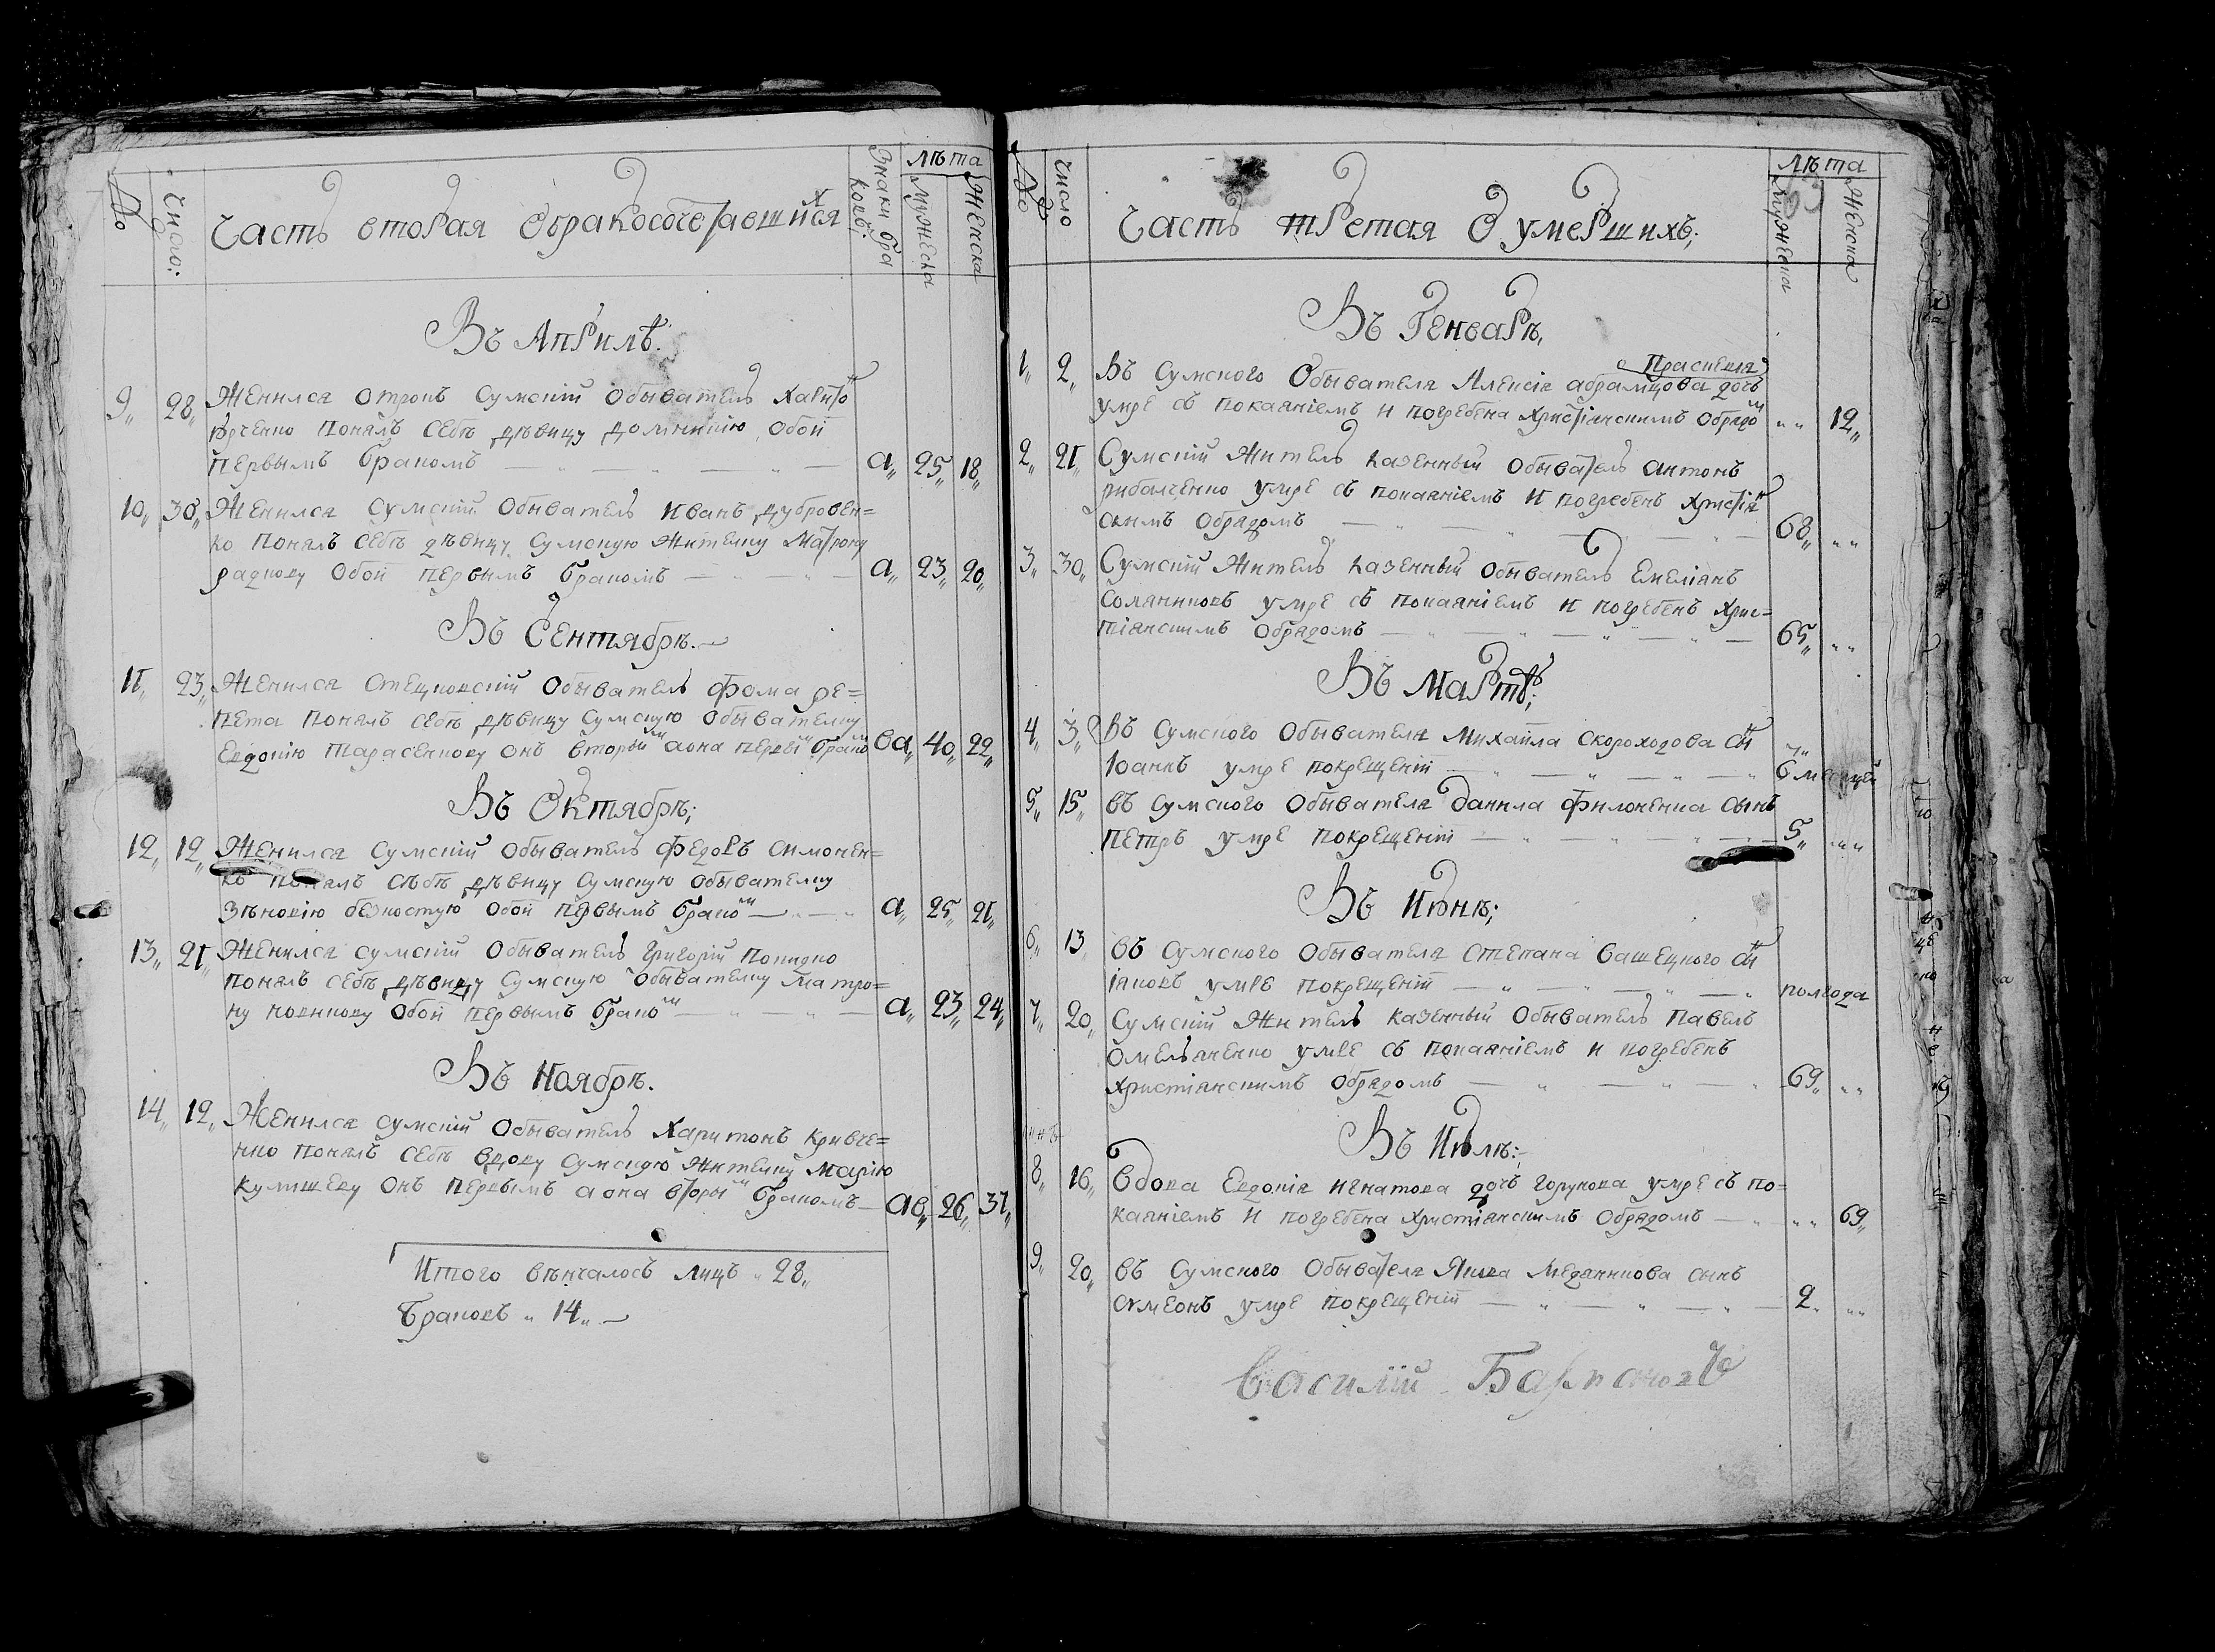 №
Число:
Часть вторая Обракосочетавшихся
Знаки бра
ковъ:
лѣта
Мужеска
Женска
Въ Априлѣ:
9„ 28„ Женился отрокъ Сумскій Обыватель
понялъ себѣ дѣвицу Обои
первымъ бракомъ а„ 25„ 18„
10„ 30„ Женился Сумскій Обыватель Иванъ дубровен=
ко понялъ себѣ дѣвицу Сумскую Жителку Матрону
Обои первымъ бракомъ а„ 23„ 20„
Въ Сентябрѣ.
11„ 23„ Женился Стецковскій Обыватель Фома ре=
пета понялъ себѣ дѣвицу Сумскую Обывателку
Евдокію Тарасенкову онъ вторымъ аона первымъ бракомъ ва„ 40„ 22„
Въ Октябрѣ;
12„ 12„ Женился Сумскій Обыватель Федоръ Симонен=
ко понялъ сѣбѣ дѣвицу Сумскую Обывателку
Зѣновію Обои первымъ бракомъ а„ 25„ 21„
13„ 21„ Женился Сумскій Обыватель Григорій
понялъ себѣ дѣвицу Сумскую Обывателку Матро=
ну Обои первымъ бракомъ а„ 23„ 24„
Въ Ноябрѣ.
14„ 12„ Женился Сумскій Обыватель Харитонъ Кривче=
нко понялъ себѣ вдову Сумскую Жителку Марію
Кулишеву онъ первымъ а она вторымъ бракомъ ав„ 26„ 37„
Итого вѣнчалось лицъ „ 28„
Браковъ „ 14„
№
Число
Часть третая О умершихъ;
лѣта
Мужеска
Женска
Въ Генварѣ,
Праскевія
1„ 2„ Въ Сумского Обывателя Алексія абрамцова дочь
умре съ покаяніемъ и погребена Христіанскимъ Обрядомъ „„ 12„
2„ 21„ Сумскій Житель казенный Обыватель Антонъ
рибалченко умре съ покаяніемъ и погребенъ Христіан
скимъ Обрядомъ 68„ „„
3„ 30„ Сумскій Житель казенный Обыватель Емеліанъ
Солянниковъ умре съ покаяніемъ и погребенъ Хрис=
тіанскимъ Обрядомъ 65„ „„
Въ Мартѣ;
4„ 3„ Въ Сумского Обывателя Михаила Скороходова сынъ
Іоаннъ умре покрещеніи 6 месяцей
5„ 15„ въ Сумского Обывателя Данила Филоненка сынъ
Петръ умре покрещеніи 5„ „„
Въ Июнѣ;
6„ 13 въ Сумского Обывателя Степана Вашецкого сынъ
Іаковъ умре покрещеніи полгода
7„ 20„ Сумскій Житель казенный Обыватель Павелъ
Омельченко умре съ покаяніемъ и погребенъ
Христіанскимъ Обрядомъ 69„ „„
Въ Июлѣ:
8„ 16„ Вдова Евдокія Игнатова дочь Горунова умре съ по=
каяніемъ и погребена Христіанскимъ Обрядомъ „„ 69„
9„ 20„ въ Сумского Обывателя Якова Медяникова сынъ
Сѵмеонъ умре покрещеніи 2„ „„
Василій